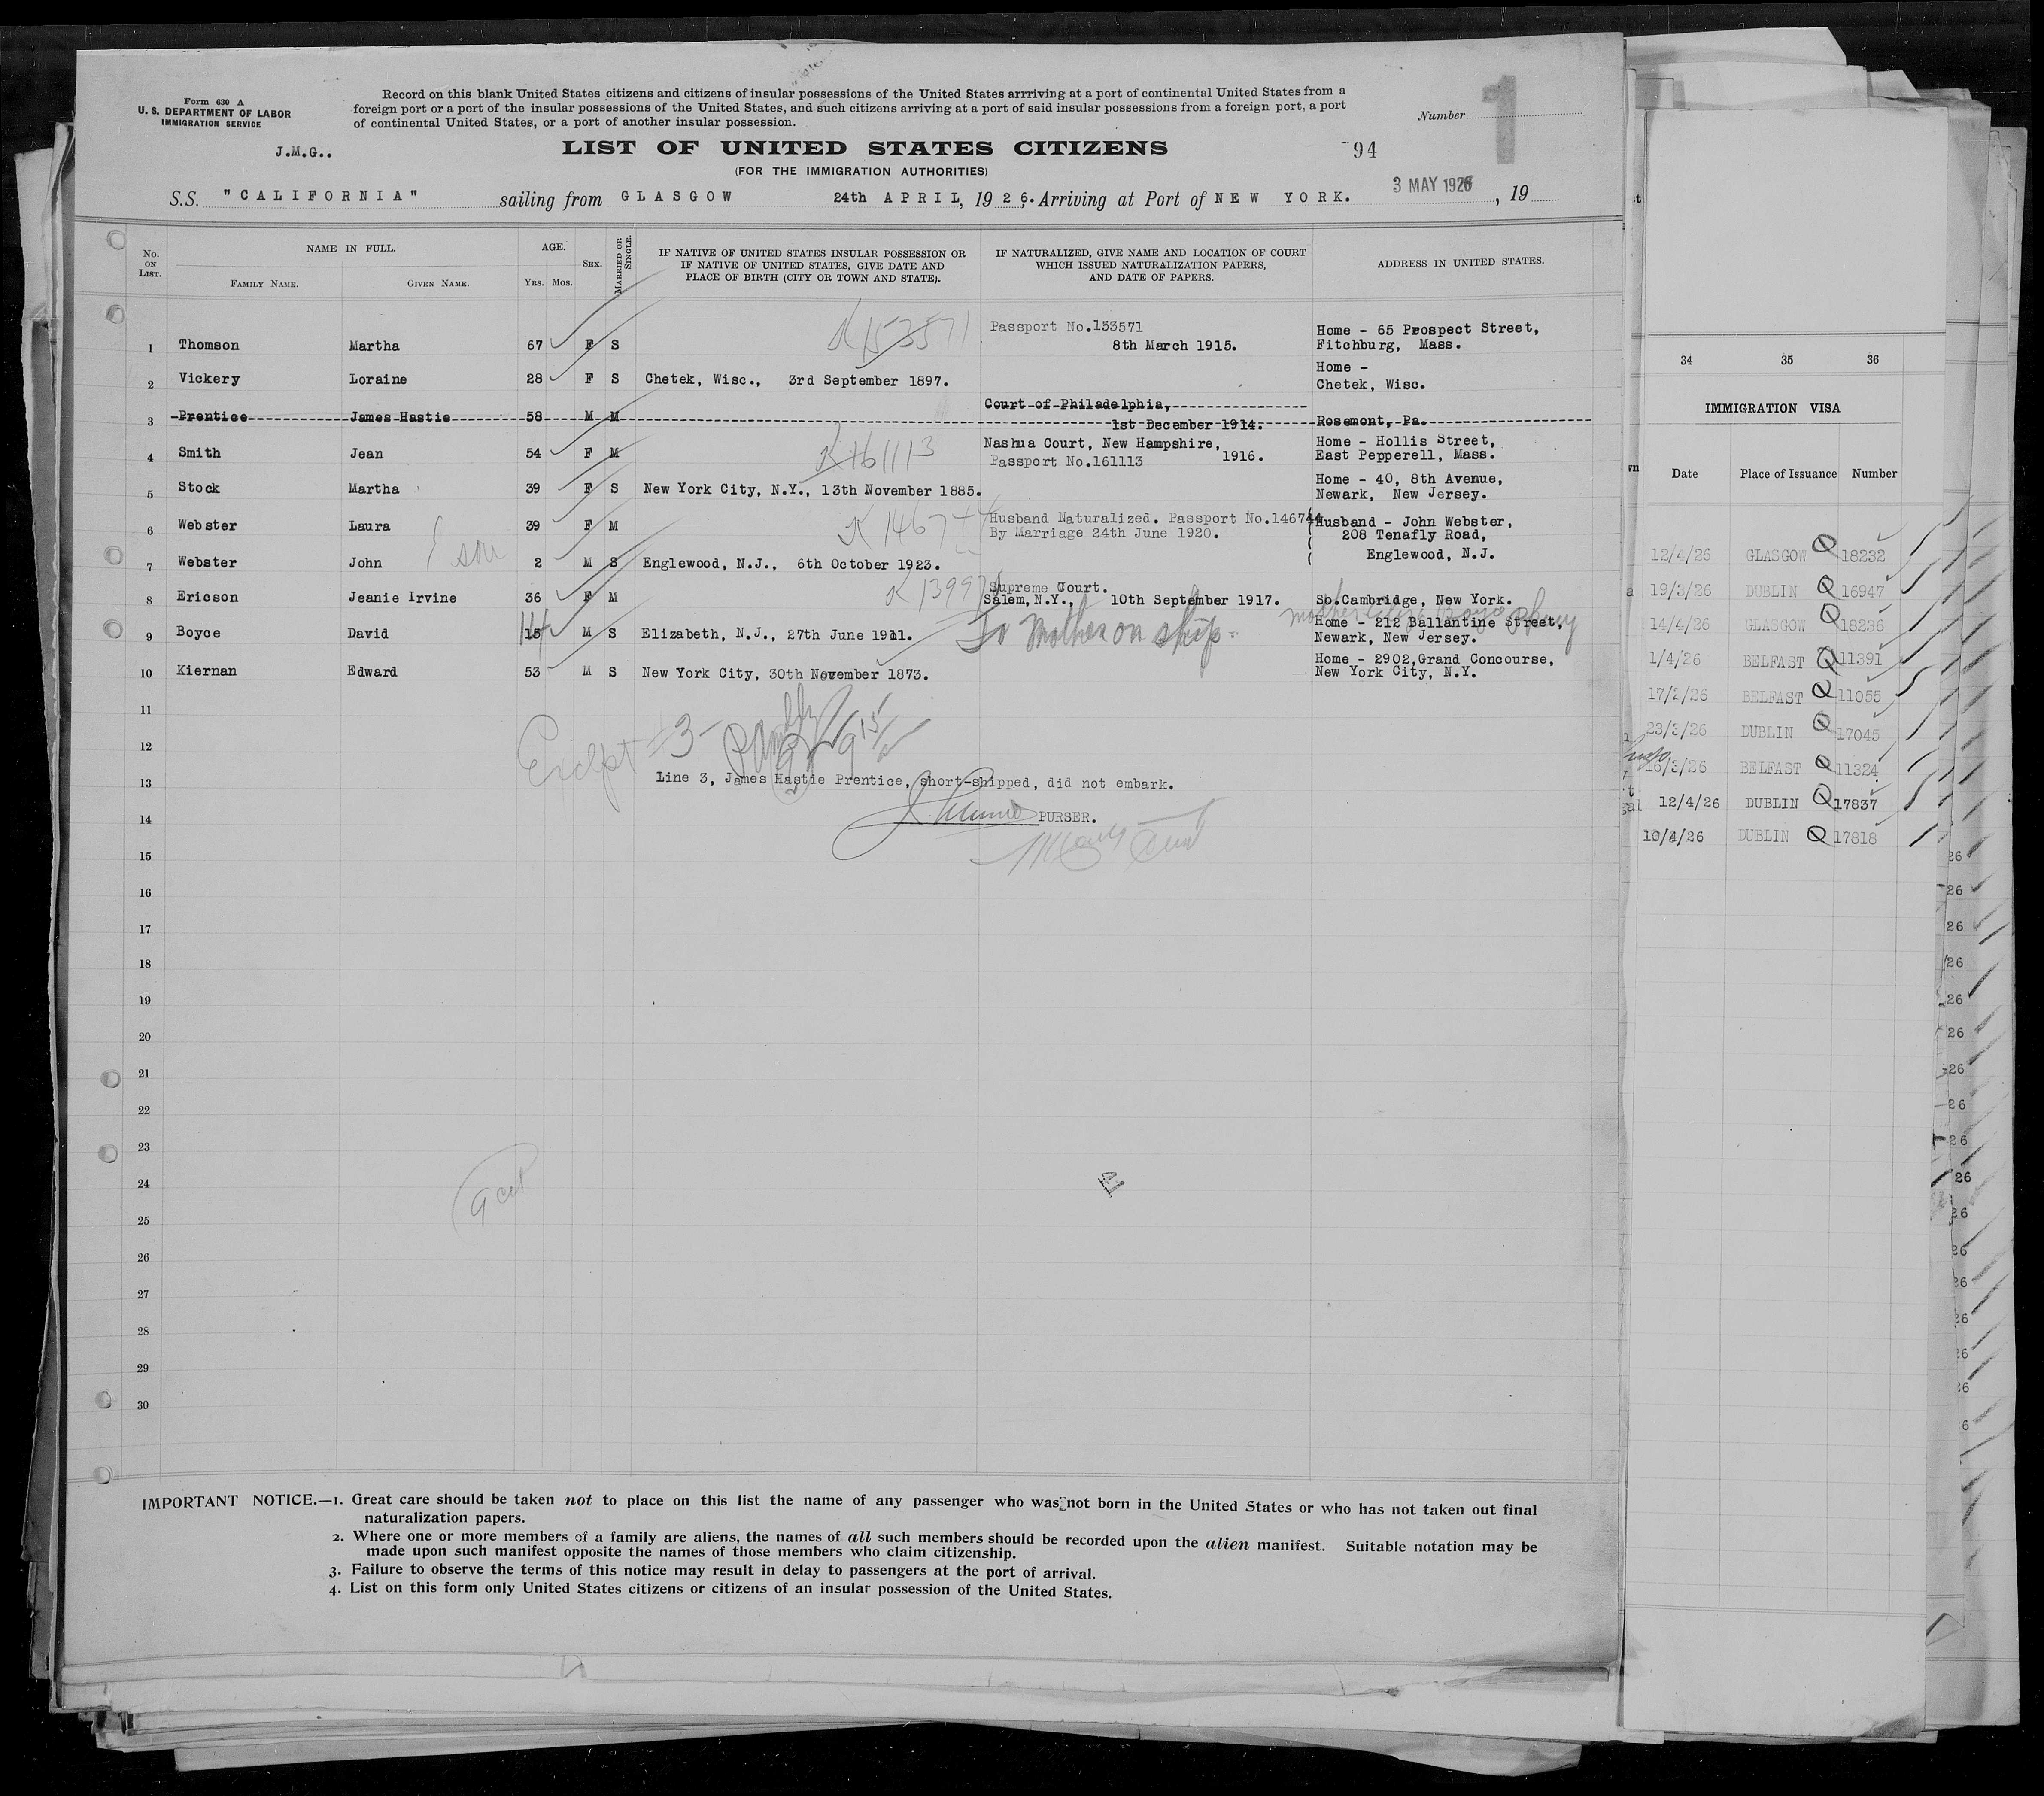 Form 630 A
U. S. DEPARTMENT OF LABOR
IMMIGRATION SERVICE
J.M.G..
Record on this blank United States citizens and citizens of insular possessions of the United States arrriving at a port of continental United States from a
foreign port or a port of the insular possessions of the United States, and such citizens arriving at a port of said insular possessions from a foreign port, a port
of continental United States, or a port of another insular possession.
Number
1
LIST OF UNITED STATES CITIZENS
94
(FOR THE IMMIGRATION AUTHORITIES)
S.S. "CALIFORNIA" sailing from GLASGOW 24th APRIL, 1926. Arriving at Port of NEW YORK. 3 MAY 1926, 19
No. ON LIST. NAME IN FULL. FAMILY NAME. GIVEN NAME. AGE. YRS. MOS. SEX. MARRIED OR SINGLE. IF NATIVE OF UNITED STATES INSULAR POSSESSION OR IF NATIVE OF UNITED STATES, GIVE DATE AND PLACE OF BIRTH (CITY OR TOWN AND STATE). IF NATURALIZED, GIVE NAME AND LOCATION OF COURT WHICH ISSUED NATURALIZATION PAPERS, AND DATE OF PAPERS. ADDRESS IN UNITED STATES.
K153571 Passport No.153571 Home - 65 Prospect Street,
1 Thomson Martha 67 F S 8th March 1915. Fitchburg, Mass.
Home -
2 Vickery Loraine 28 F S Chetek, Wisc., 3rd September 1897. Chetek, Wisc.
Court of Philadelphia,
3 Prentice James Hastie 58 M M 1st December 1914. Rosemont, Pa.
Nashua Court, New Hampshire, Home - Hollis Street,
4 Smith Jean 54 F M K161113 Passport No.161113 1916. East Pepperell, Mass.
Home - 40, 8th Avenue,
5 Stock Martha 39 F S New York City, N.Y., 13th November 1885. Newark, New Jersey.
Husband Naturalized. Passport No.146744 Husband - John Webster,
6 Webster Laura 39 F M K146744 By Marriage 24th June 1920. 208 Tenafly Road,
7 Webster John son 2 M S Englewood, N.J., 6th October 1923. Englewood, N.J.
Supreme Court.
8 Ericson Jeanie Irvine 36 F M Salem, N.Y., 10th September 1917. So.Cambridge, New York.
Home - 212 Ballantine Street,
9 Boyce David 15 14 M S Elizabeth, N.J., 27th June 1911. To Mother on ship Newark, New Jersey.
Home - 2902,Grand Concourse,
10 Kiernan Edward 53 M S New York City, 30th November 1873. New York City, N.Y.
11
12
Except #3
13 Line 3, James Hastie Prentice, short-shipped, did not embark.
14 PURSER.
15
16
17
18
19
20
21
22
23
24
9 cit
25
26
27
28
29
30
IMPORTANT NOTICE.—1. Great care should be taken not to place on this list the name of any passenger who was not born in the United States or who has not taken out final
naturalization papers.
2. Where one or more members of a family are aliens, the names of all such members should be recorded upon the alien manifest. Suitable notation may be
made upon such manifest opposite the names of those members who claim citizenship.
3. Failure to observe the terms of this notice may result in delay to passengers at the port of arrival.
4. List on this form only United States citizens or citizens of an insular possession of the United States.
34 35 36
IMMIGRATION VISA
Date Place of Issuance Number
12/4/26 GLASGOW 18232
19/3/26 DUBLIN 16947
14/4/26 GLASGOW 18236
1/4/26 BELFAST 11391
17/2/26 BELFAST 11055
23/3/26 DUBLIN 17045
16/3/26 BELFAST 11324
12/4/26 DUBLIN 17837
10/4/26 DUBLIN 17818